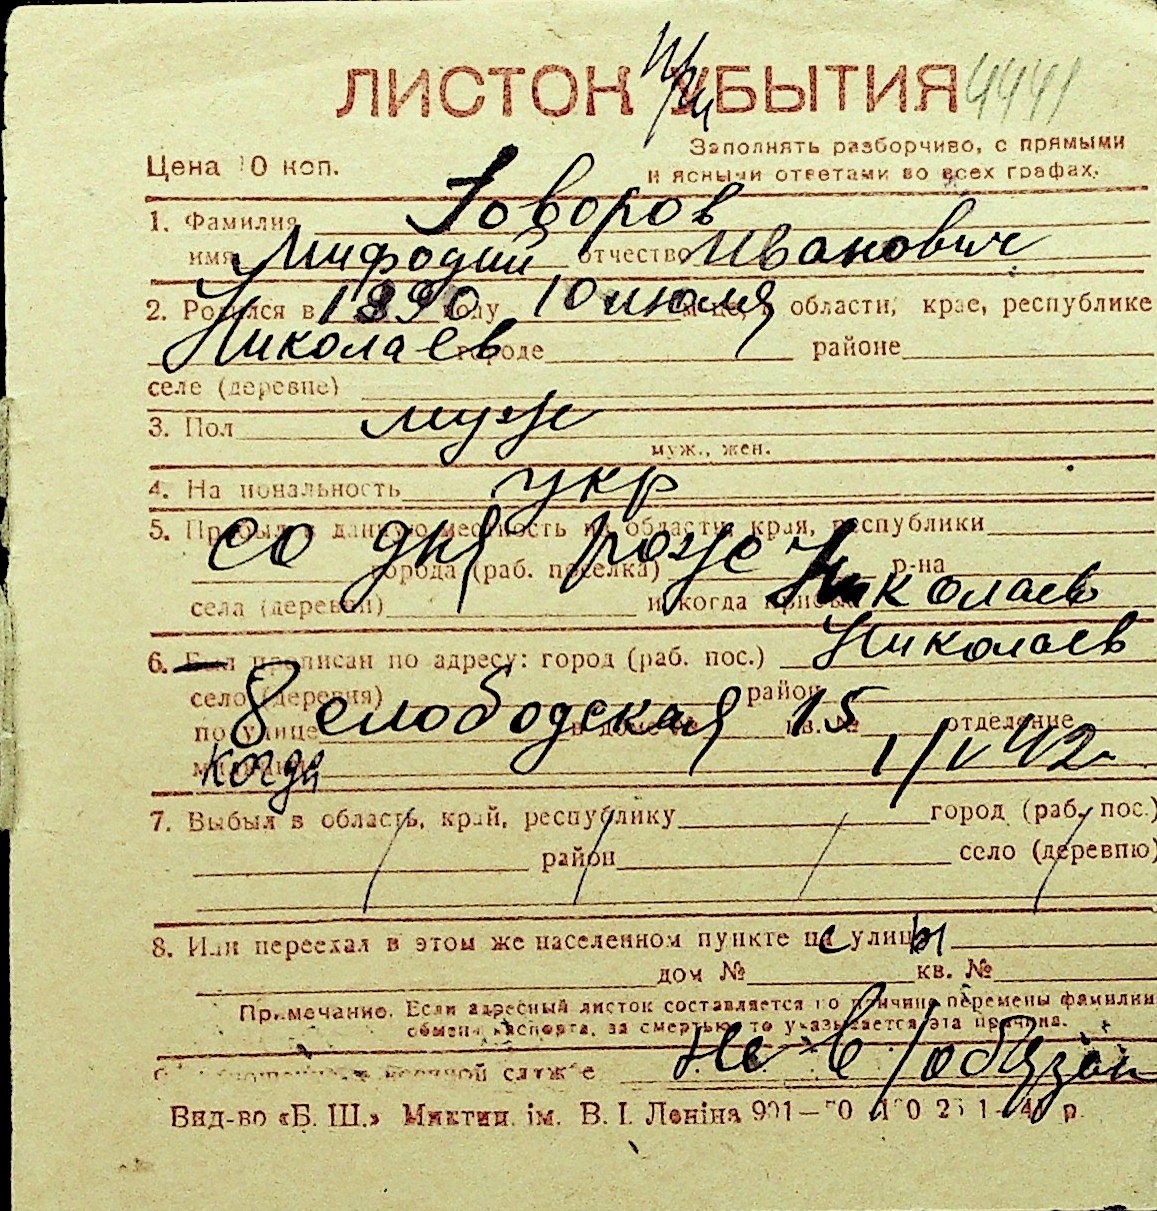 ЛИСТОК УБЫТИЯ 4441
Заполнять разборчиво, с прямыми
Цена 10 коп. и ясными ответами во всех графах.
1. Фамилия Говоров
имя Мифодий отчество Иванович
2. Родился в 1890 году 10 июля м-це, в области, крае, республике
Николаев городе районе
селе (деревне)
3. Пол муж
муж., жен.
4. Национальность укр
5. Прибыл в данную местность из области, края, республики
со дня рожд Николаев
города (раб. поселка) р-на
села (деревни) и когда прибыл
6. Был прописан по адресу: город (раб. пос.) Николаев
село (деревня) район
по улице 8 слободская в доме № 15 кв. № отделение
милиции когда 1/V 42 г
7. Выбыл в область, край, республику город (раб. пос.)
район село (деревню)
8. Или переехал в этом же населенном пункте на улицу
дом № кв. №
Примечание. Если адресный листок составляется по причине перемены фамилии
обмена паспорта, за смертью, то указывается эта причина.
военной службе не в/обязан
Вид-во «Б. Ш.» Миктип. ім. В. І. Леніна